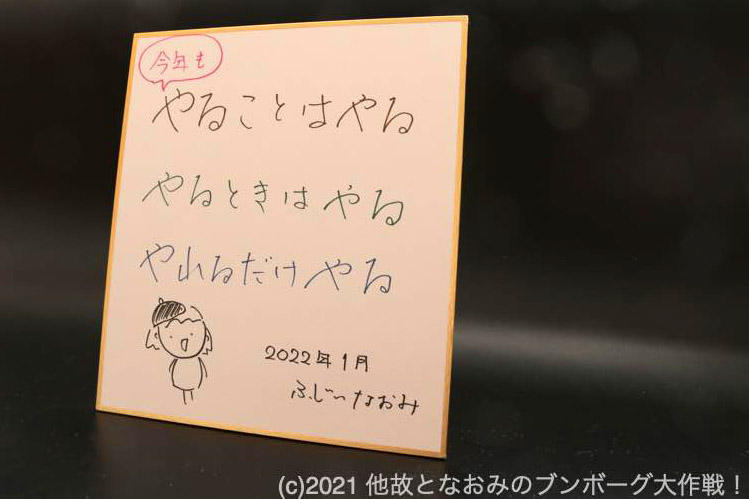 今年も
やることはやる
やるときはやる
やれるだけやる
2022年1月
ふじいなおみ
(c)2021 他故となおみのブンボーグ大作戦！